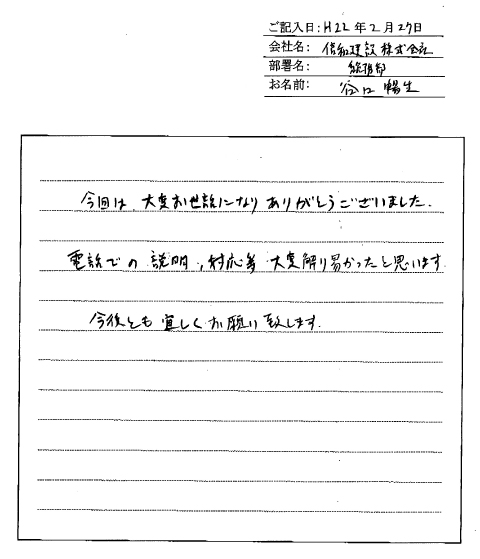 ご記入日:H22年2月27日
会社名: 信和建設株式会社
部署名: 総務部
お名前: 谷口 暢生
今回は、大変お世話になりありがとうございました.
電話での説明,対応等 大変解り易かったと思います.
今後とも宜しくお願い致します.